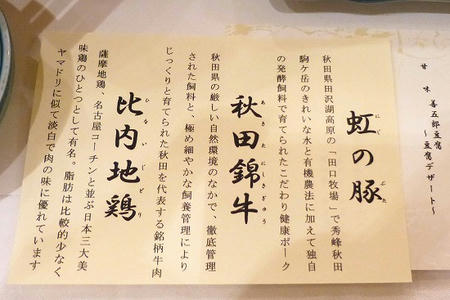 甘味 善五郎豆腐
〜豆腐デザート〜
虹の豚
にじ ぶた
秋田県田沢湖高原の「田口牧場」で秀峰秋田
駒ケ岳のきれいな水と有機農法に加えて独自
の発酵飼料で育てられたこだわり健康ポーク
秋田錦牛
あきたにしきぎゅう
秋田県の厳しい自然環境のなかで、徹底管理
された飼料と、極め細やかな飼養管理により
じっくりと育てられた秋田を代表する銘柄牛肉
比内地鶏
ひないじどり
薩摩地鶏、名古屋コーチンと並ぶ日本三大美
味鶏のひとつとして有名。脂肪は比較的少なく
ヤマドリに似て淡白で肉の味に優れています